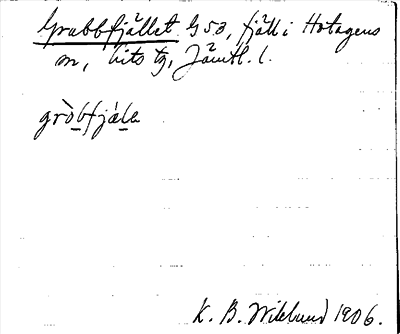 Grubbfjället G 53, fjäll i Hotagens
sn, Lits tg, Jämtl. l.
gròbfjäla
K. B. Wiklund 1906.